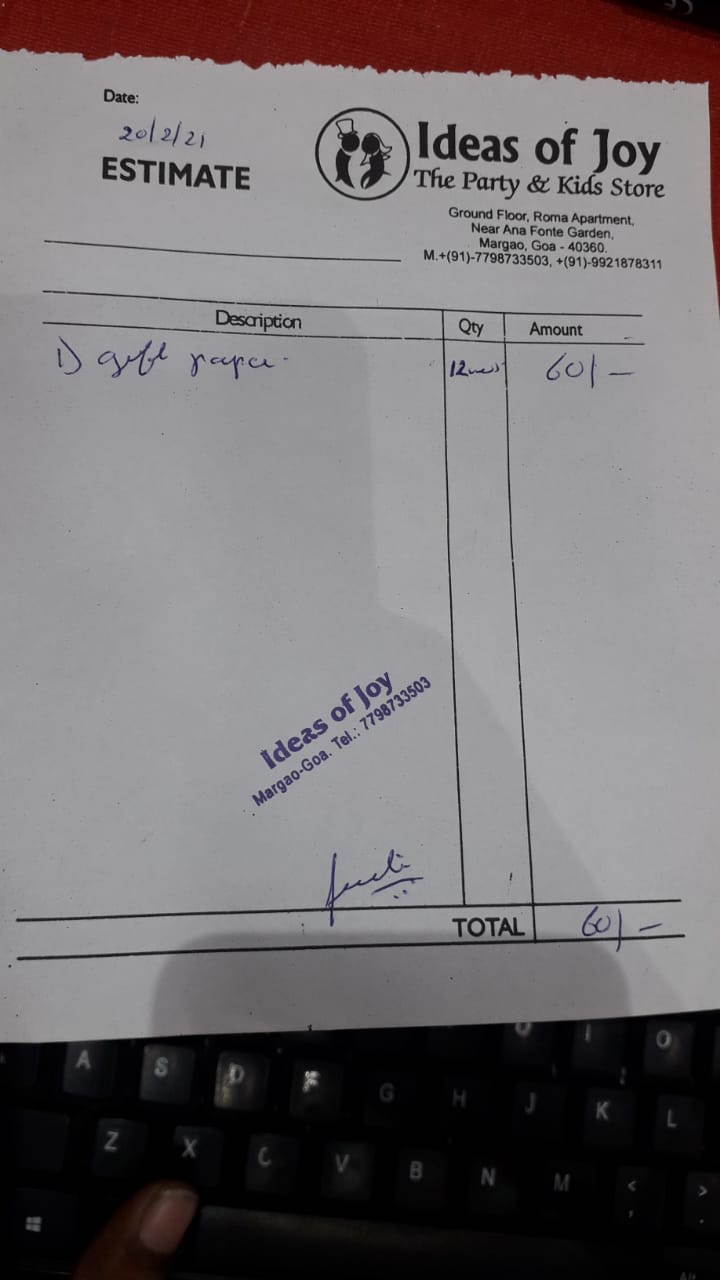 Date:
20/2/21
ESTIMATE
Ideas of Joy
The Party & Kids Store
Ground Floor, Roma Apartment,
Near Ana Fonte Garden,
Margao, Goa - 40360.
M.+(91)-7798733503, +(91)-9921878311
Description Qty Amount
1) gift paper 12 60/-
Ideas of Joy
Margao-Goa. Tel.: 7798733503
TOTAL 60/-
O I O
A S D F G H J K L
Z X C V B N M < >
, .